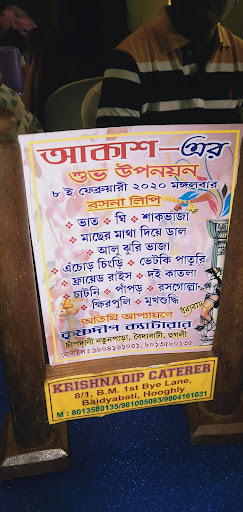 আকাশ-এর
শুভ উপনয়ন
৮ ই ফেব্রুয়ারী ২০২০ মঙ্গলবার
রসনা লিপি
ভাত ঘি শাকভাজা
মাছের মাথা দিয়ে ডাল
আলু ঝুরি ভাজা
এঁচোড় চিংড়ি ভেটকি পাতুরি
ফ্রায়েড রাইস দই কাতলা
চাটনি পাঁপড় রসগোল্লা
ক্ষিরপুলি মুখশুদ্ধি
ধন্যবাদ
অতিথি আপ্যায়ণে
কৃষ্ণদীপ ক্যাটারার
চাঁপদানী নতুনপাড়া, বৈদ্যবাটী, হুগলী
মোবাইল : ৯৮০৪১৬১০৩১, ৮০১৩৫৮০১৩৫
KRISHNADIP CATERER
8/1, B.M. 1st Bye Lane,
Baidyabati, Hooghly
M : 8013580135/981005083/9804161031